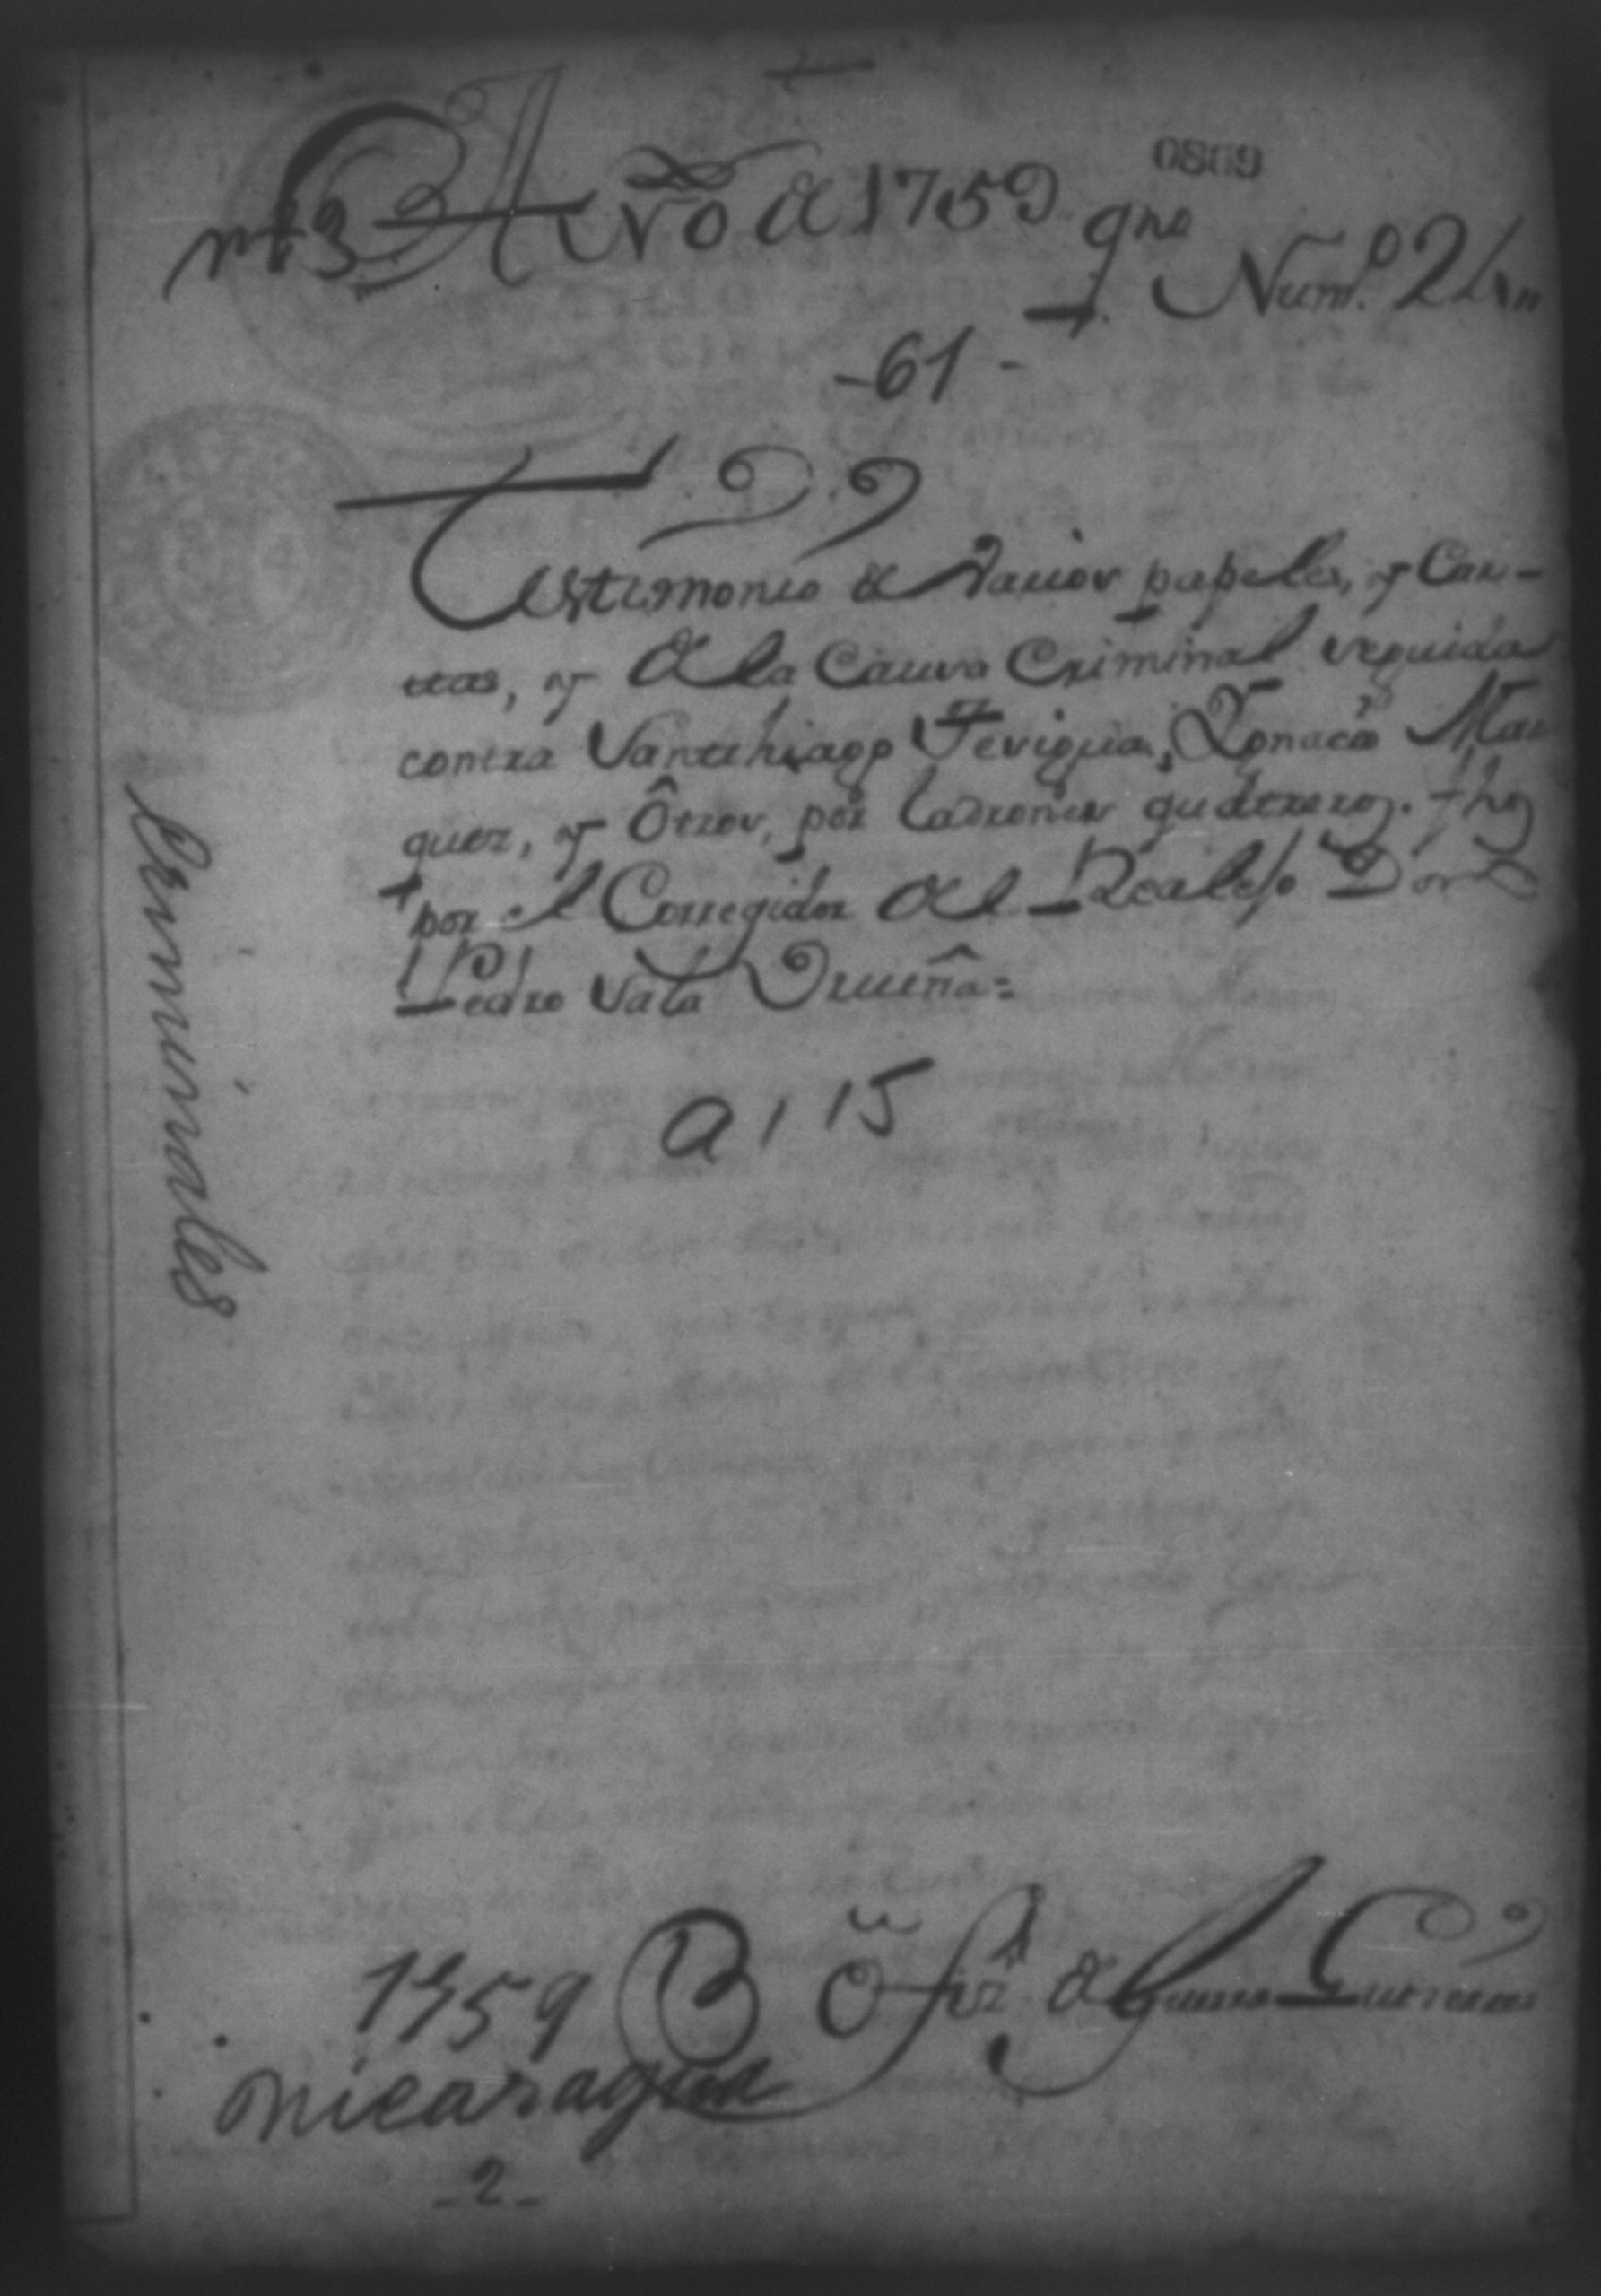 0809
Año de 1759
Num.º 24
-61-
Testimonio de Varios papeles, y Car-
ttas, y de la Causa Criminal seguida
contra Santthiago Seviqua, Ygnacio Mar
quez, y Ôtros, por Ladrones quatreros. fho
por el Corregidor del Realejo Don
Pedro Vala Orueña=
a 1 15
Criminales
1759
Nicaragua
-2-